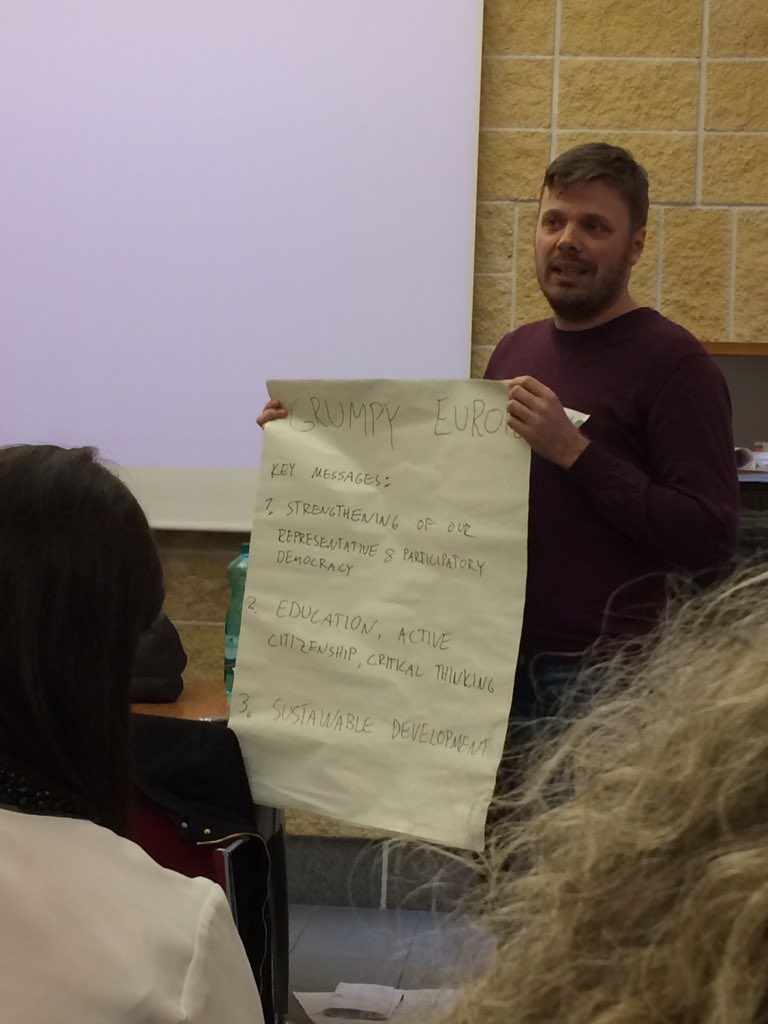 GRUMPY EURO
KEY MESSAGES:
1. STRENGTHENING OF OUR
REPRESENTATIVE & PARTICIPATORY
DEMOCRACY
2. EDUCATION, ACTIVE
CITIZENSHIP, CRITICAL THINKING
3. SUSTAINABLE DEVELOPMENT